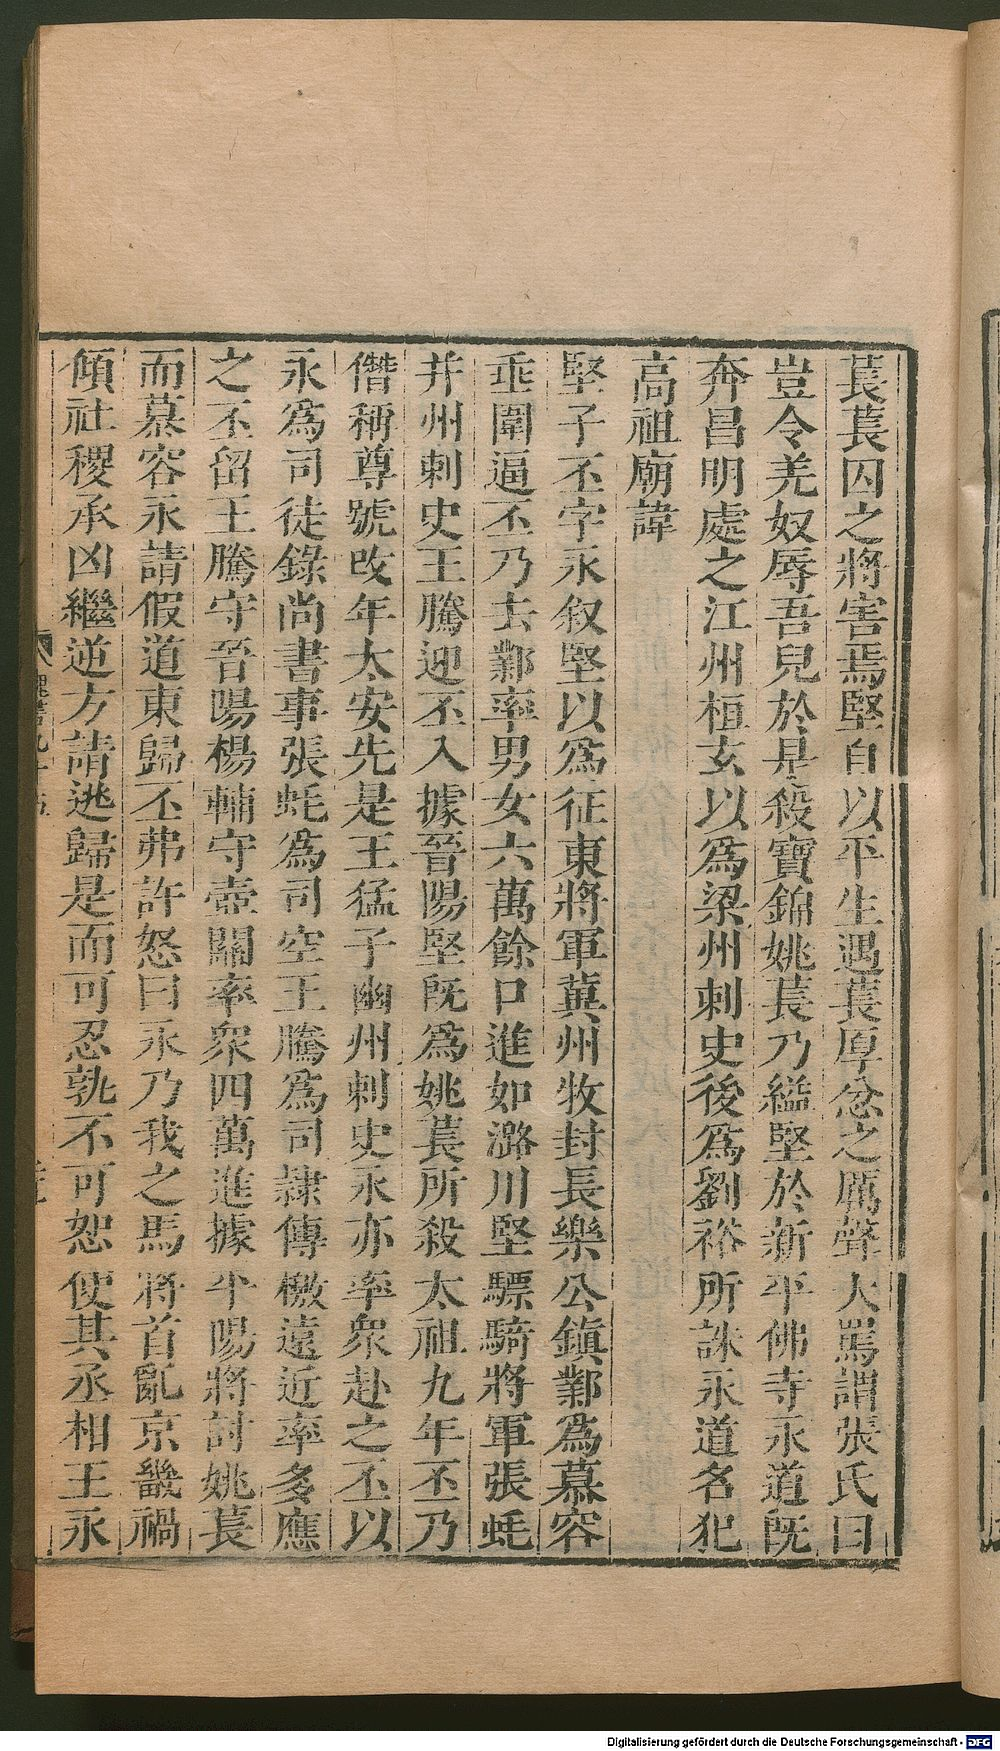 萇萇囚之將害焉堅自以平生遇萇厚忿之厲聲大罵謂張氏曰
豈令羌奴辱吾兒於是殺寶錦姚萇乃縊堅於新平佛寺永道既
奔昌明處之江州桓玄以爲梁州刺史後爲劉裕所誅永道名犯
高祖廟諱
堅子丕字永叙堅以爲征東將軍冀州牧封長樂公鎮鄴爲慕容
垂圍逼丕乃去鄴率男女六萬餘口進如潞川堅驃騎將軍張蚝
并州刺史王騰迎丕入據晉陽堅既爲姚萇所殺太祖九年丕乃
僭稱尊號改年太安先是王猛子幽州刺史永亦率衆赴之丕以
永爲司徒錄尚書事張蚝爲司空王騰爲司隸傳檄遠近率多應
之丕留王騰守晉陽楊輔守壺關率衆四萬進據平陽將討姚萇
而慕容永請假道東歸丕弗許怒曰永乃我之馬將首亂京畿禍
傾社稷承凶繼逆方請逃歸是而可忍孰不可恕使其丞相王永
Digitalisierung gefördert durch die Deutsche Forschungsgemeinschaft - DFG